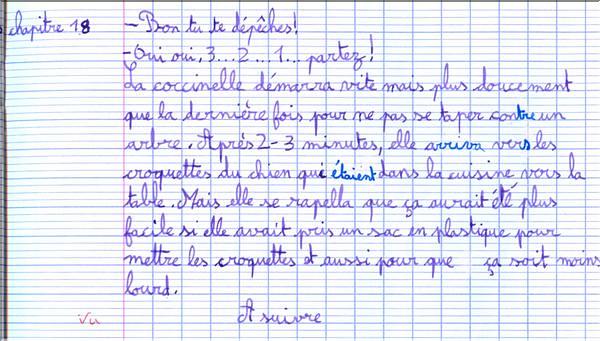 chapitre 18 - Bon tu te dépêches!
- Oui oui, 3... 2... 1... partez!
La coccinelle démarra vite mais plus doucement
que la dernière fois pour ne pas se taper contre un
arbre. Après 2-3 minutes, elle arriva vers les
croquettes du chien qui étaient dans la cuisine vers la
table. Mais elle se rapella que ça aurait été plus
facile si elle avait pris un sac en plastique pour
mettre les croquettes et aussi pour que ça soit moins
lourd.
Vu A suivre